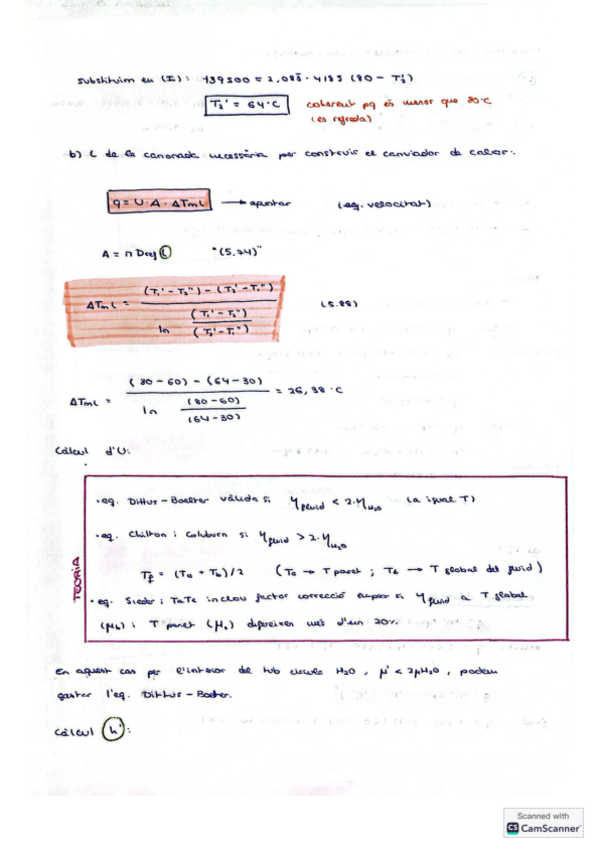 Substituim en (I): 139500 = 2,083 · 4185 (80 - T₂')
T₂' = 64°C coherent pq és menor que 80°C
(es refreda)
b) L de la canonada necessària per construir el canviador de calor:
q = U · A · ΔTmL → apuntar (eq. velocitat)
A = π Dref L "(5.74)"
ΔTmL = ((T₁' - T₂'') - (T₂' - T₁'')) / (ln ((T₁' - T₂'') / (T₂' - T₁''))) (5.88)
ΔTmL = ((80 - 60) - (64 - 30)) / (ln ((80 - 60) / (64 - 30))) = 26,38 °C
Càlcul d'U:
TEORIA
• eq. Dittus-Boelter vàlida si μfluid < 2·μH₂O (a igual T)
• eq. Chilton i Colburn si μfluid > 2·μH₂O
Tf = (To + Tb)/2 (To → T paret ; Tb → T global del fluid)
• eq. Sieder i Tate inclou factor correcció si μfluid a T global
(μb) i T paret (μo) difereixen més d'un 20%.
En aquest cas per l'interior del tub circula H₂O, μ' < 2μH₂O, podem
gastar l'eq. Dittus-Boelter.
Càlcul h':
Scanned with
CS CamScanner